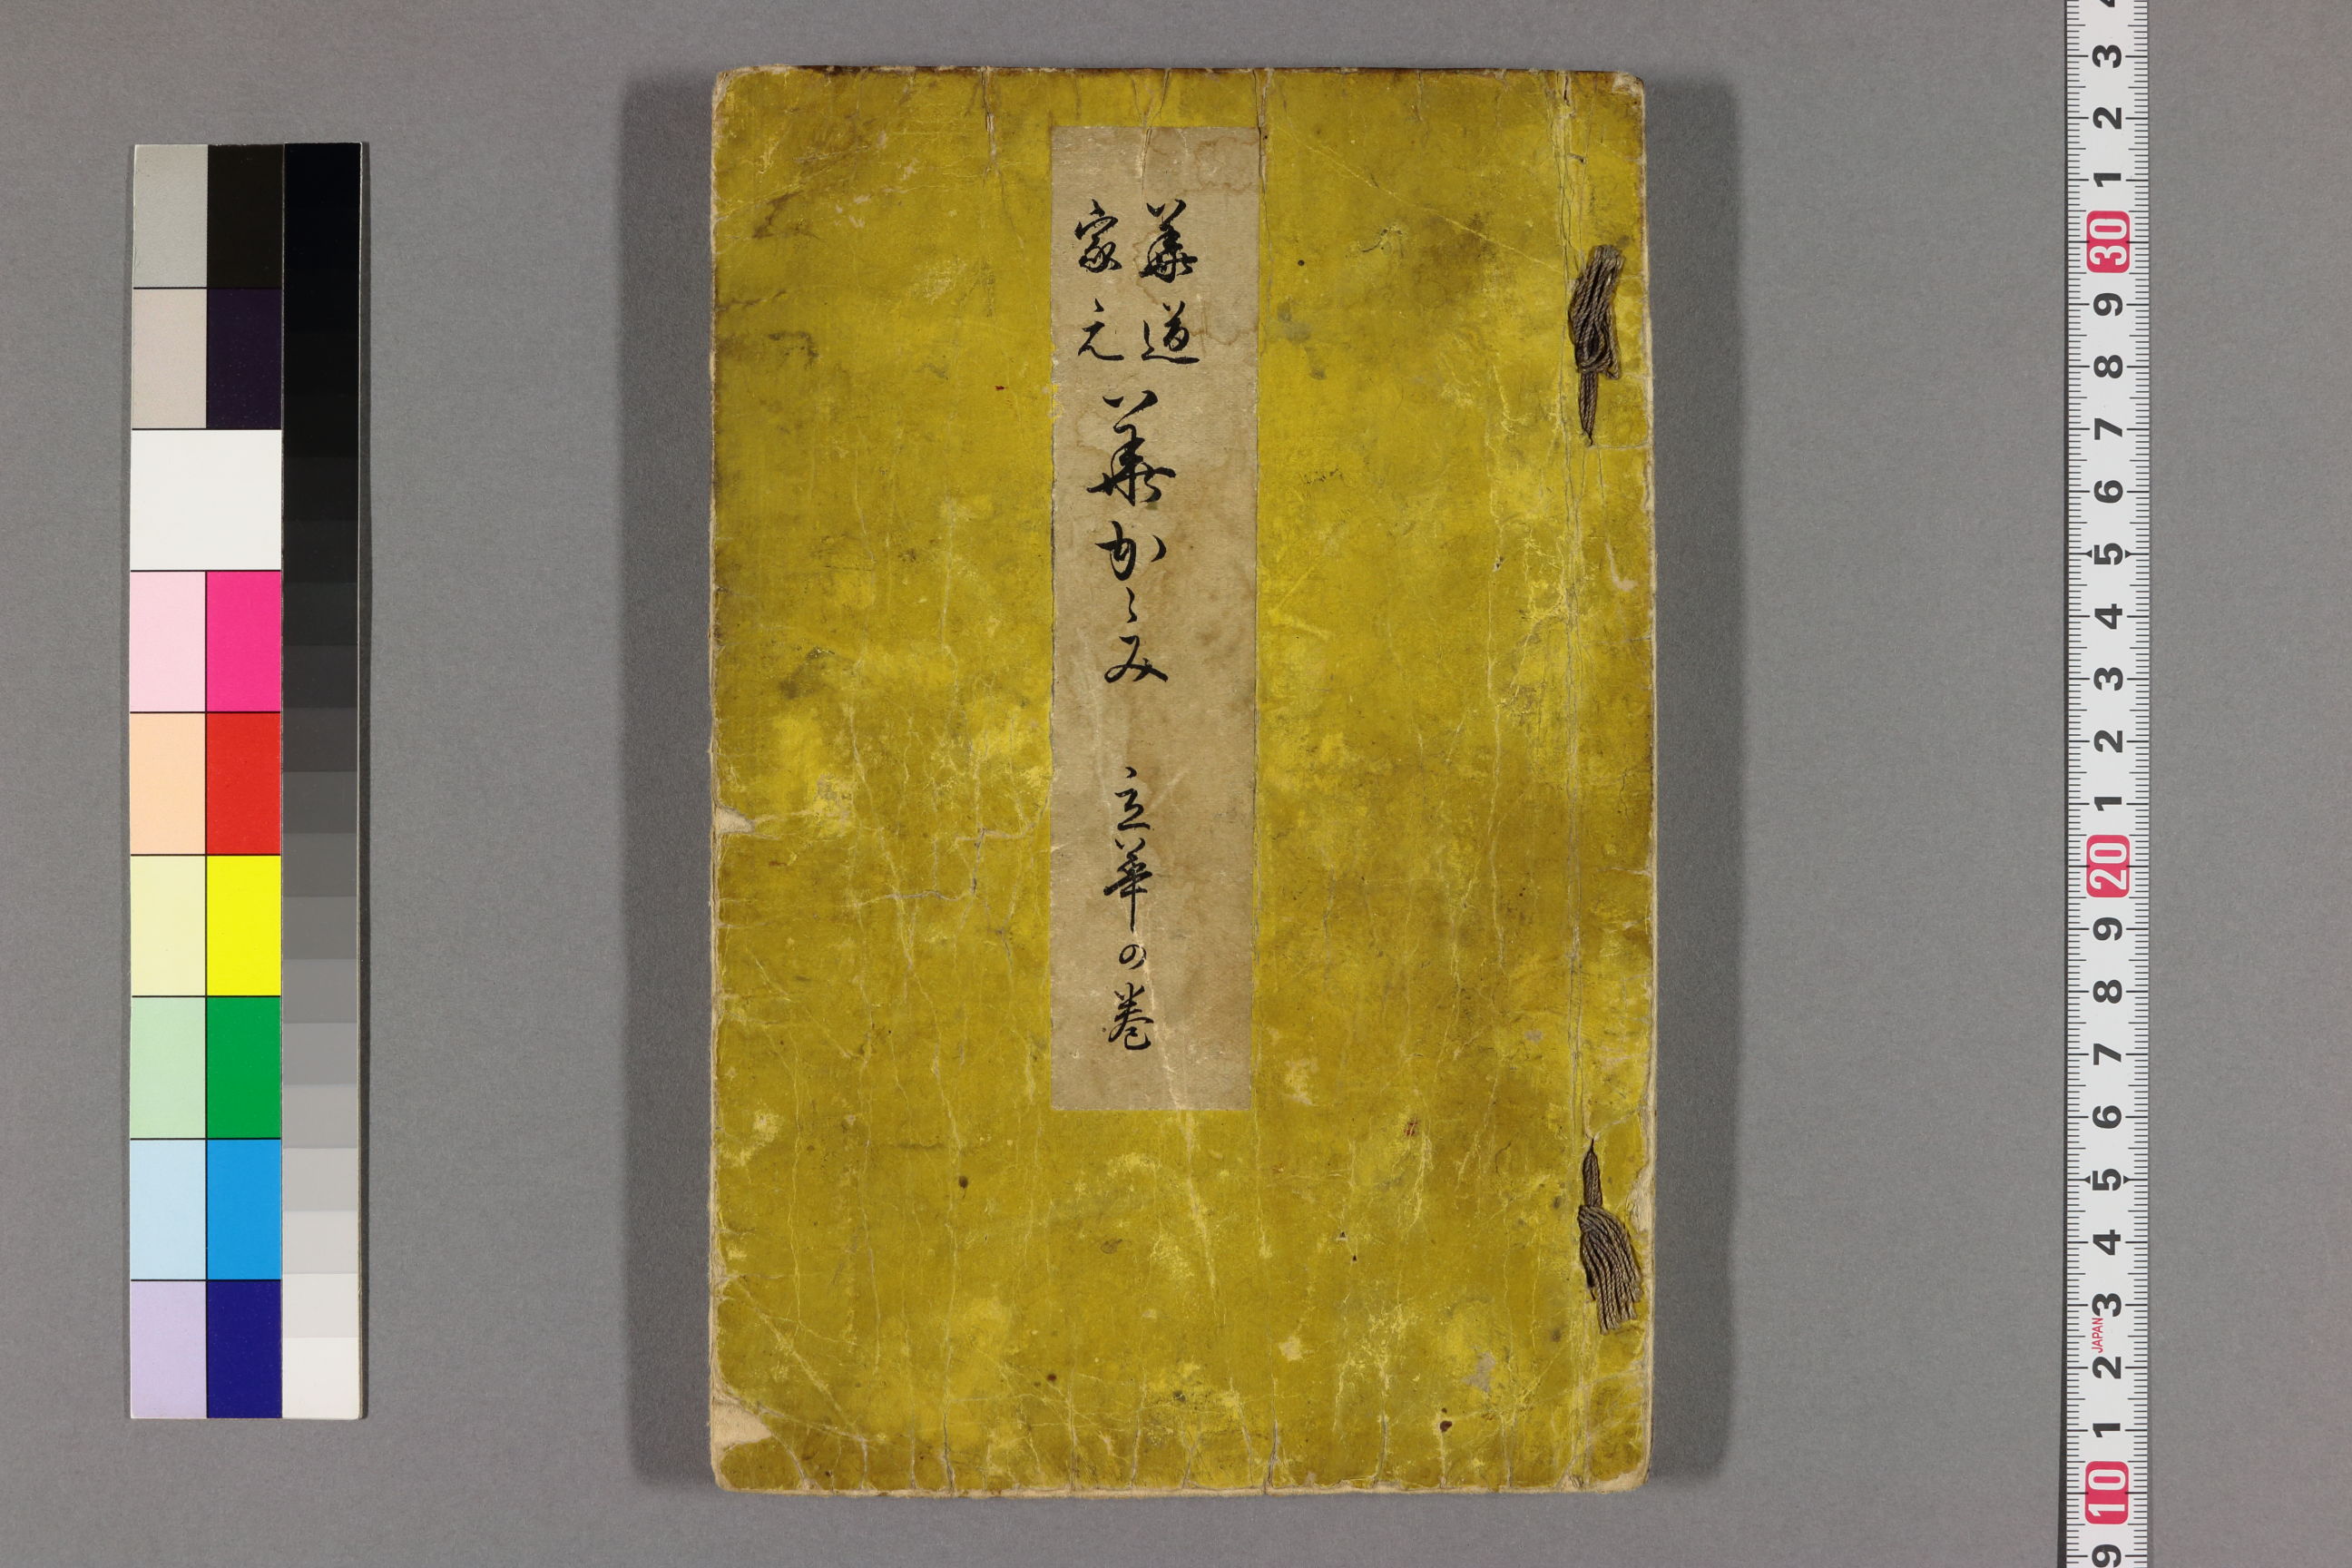 華道
家元
華かゝみ　立華の巻
3
2
1
30
9
8
7
6
5
4
3
2
1
20
9
8
7
6
5
4
3
JAPAN
2
1
10
9